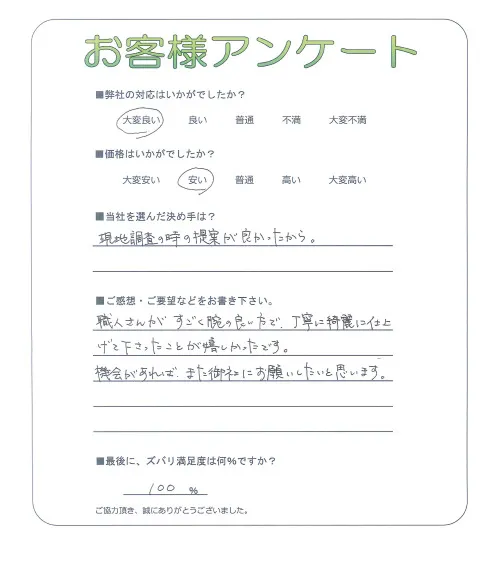 お客様アンケート
■弊社の対応はいかがでしたか？
大変良い 良い 普通 不満 大変不満
■価格はいかがでしたか？
大変安い 安い 普通 高い 大変高い
■当社を選んだ決め手は？
現地調査の時の提案が良かったから。
■ご感想・ご要望などをお書き下さい。
職人さんが すごく腕の良い方で、丁寧に綺麗に仕上
げて下さったことが嬉しかったです。
機会があれば、また御社にお願いしたいと思います。
■最後に、ズバリ満足度は何％ですか？
100 %
ご協力頂き、誠にありがとうございました。